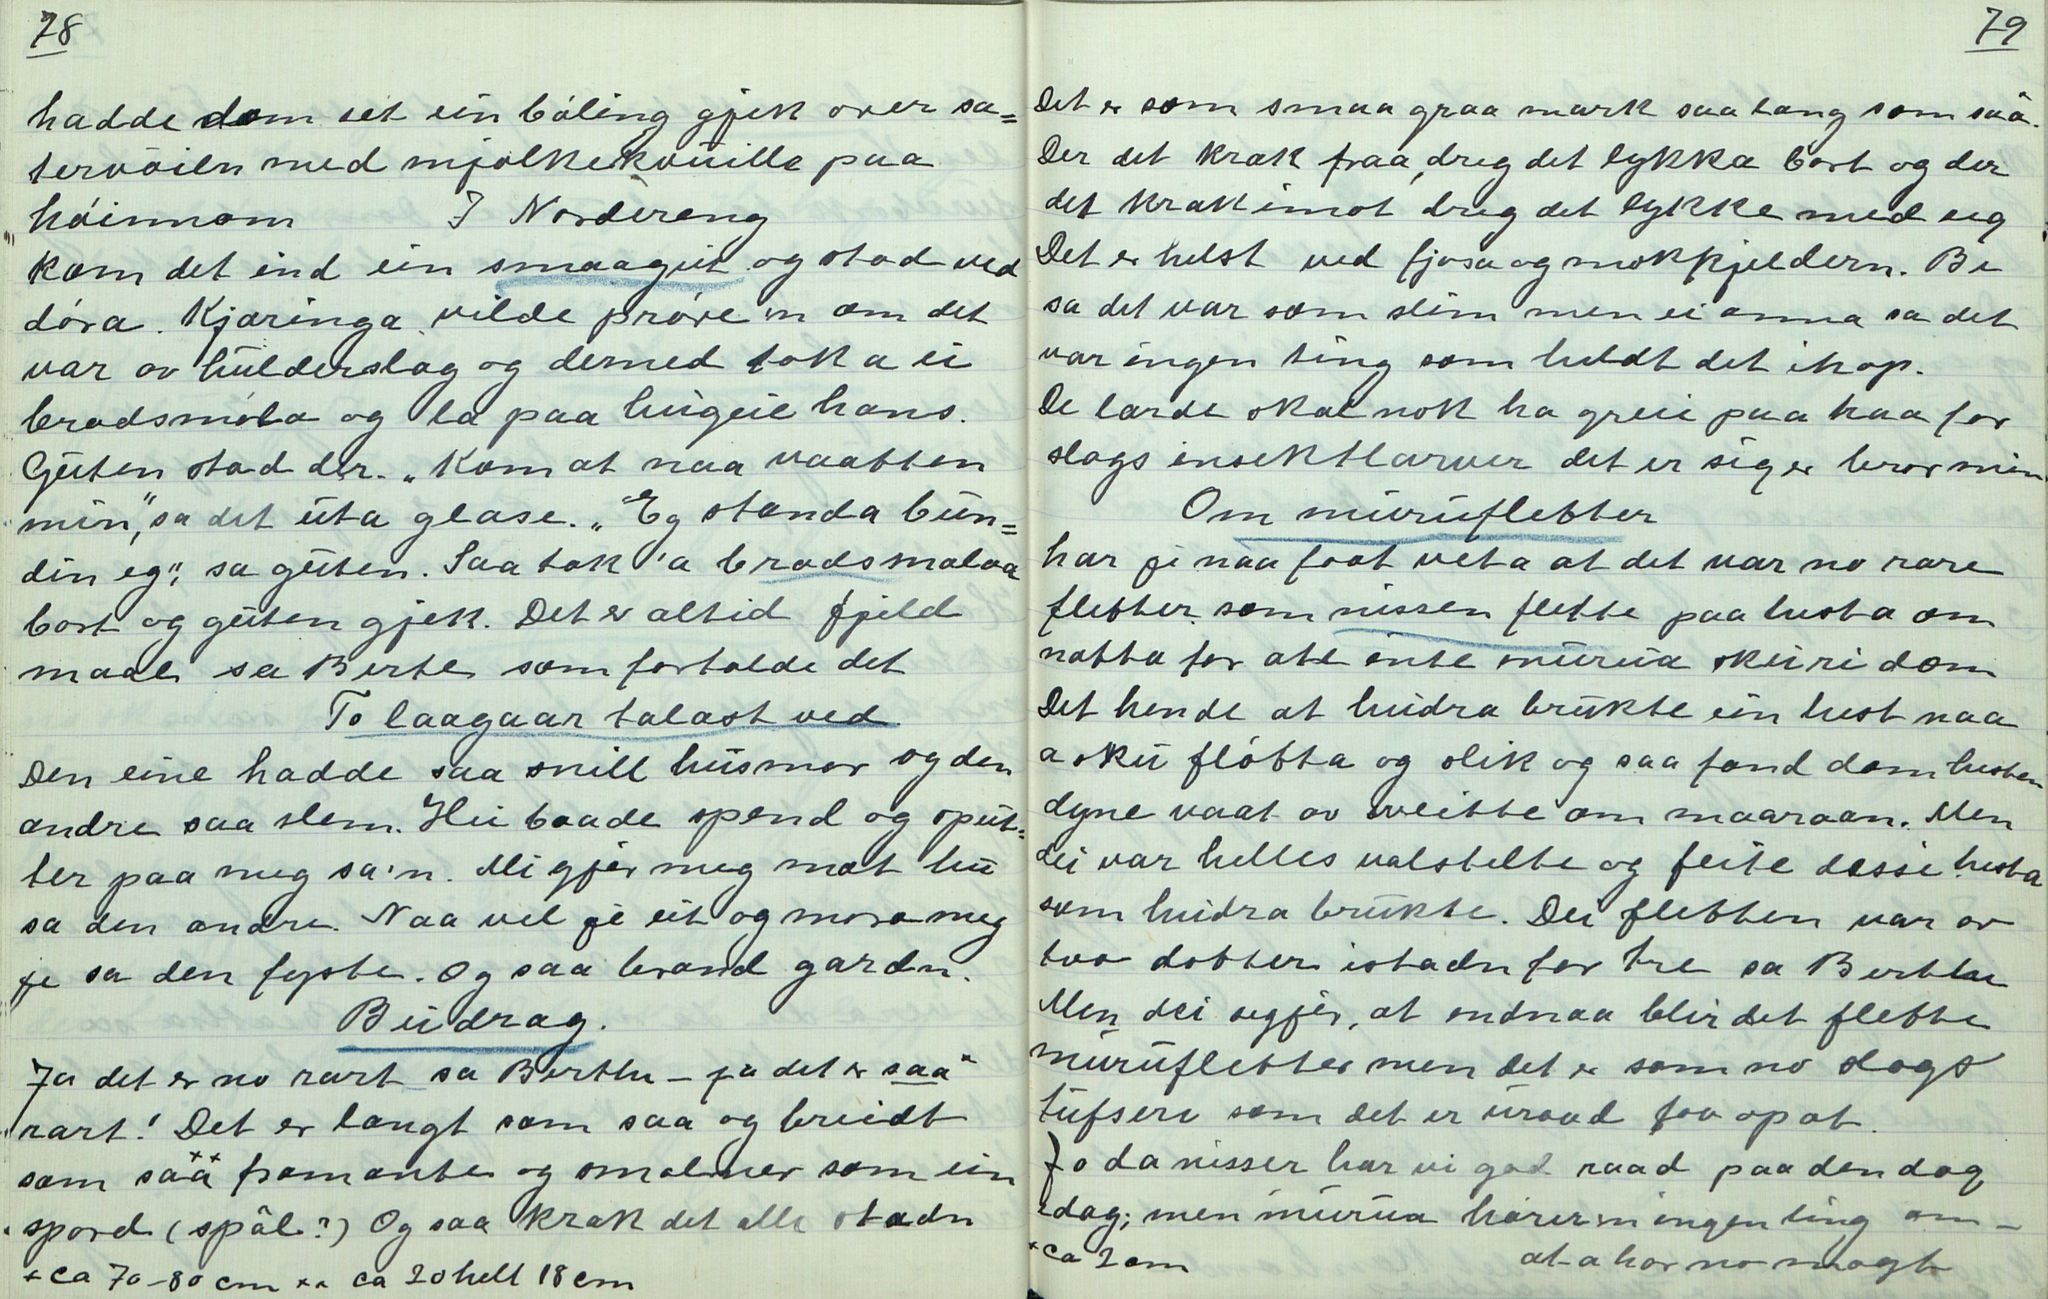 78
hadde dom set ein böling gjek over sa=
tervöiln med mjölkekvuille paa
höinnom I Nordereng
kom det ind ein smaagut og stod ved
döra. Kjæringa vilde pröve 'n om det
var ov hulderslag og dermed tok a ei
brödsmola og la paa hugeie hans.
Guten stod der. „Kom at naa vaatten
min," sa det uta glase. „Eg standa bun=
din eg", sa guten. Saa tok 'a brödsmolaa
bort og guten gjek. Det er altid fjeld
maal sa Berte som fortalde det
To laagaar talast ved
Den eine hadde saa snill husmor og den
andre saa slem. Hu baade spend og sput=
ter paa meg sa'n. Mi gjer meg mat hu
sa den andre. Naa vel je ut og mora meg
je sa den fyste. Og saa brand gardn.
Budrag.
Ja det er no rart sa Berthe – ja det er saa*
rart! Det er langt som saa og breidt
som såå ** framante og smalner som ein
spord (spål?) Og saa krak det alle stadn
* ca 70-80 cm ** ca 20 helt 18 cm
79
Det er som smaa graa mark saa lang som såå.
Der det krak fraa, dreg det lykka bort og der
det krak imot dreg det lykke med seg
Det er helst ved fjøsa og mokkjeldern. Be
sa det var som slim men ei anna sa det
var ingen ting som heldt det ihop.
De lærde skal nok ha greie paa haa for
slags insektlarver det er siger bror min
Om muruflebter
har je naa faat veta at det var no rare
flebter som nissen flette paa hesta om
natta for att inte murua sku ri dom
Det hende at huldra brukte ein hest naa
a sku flötta og slik og saa fand dom hesten
dyne vaat av sveitte om maaraan. Men
dei var helles valstelte og feite desse hesta
som huldra brukte. Dei flebten var ov
tvo dotter istadn for tre sa Berthe
Men dei segjer, at endnaa blir det flebte
muruflebter men det er som no slags
tufseri som det er uraad faa opat.
Jo da nisser har vi god raad paa den dag
idag; men murua hörer m ingen ting om –
at a har no magt
* ca 2 cm